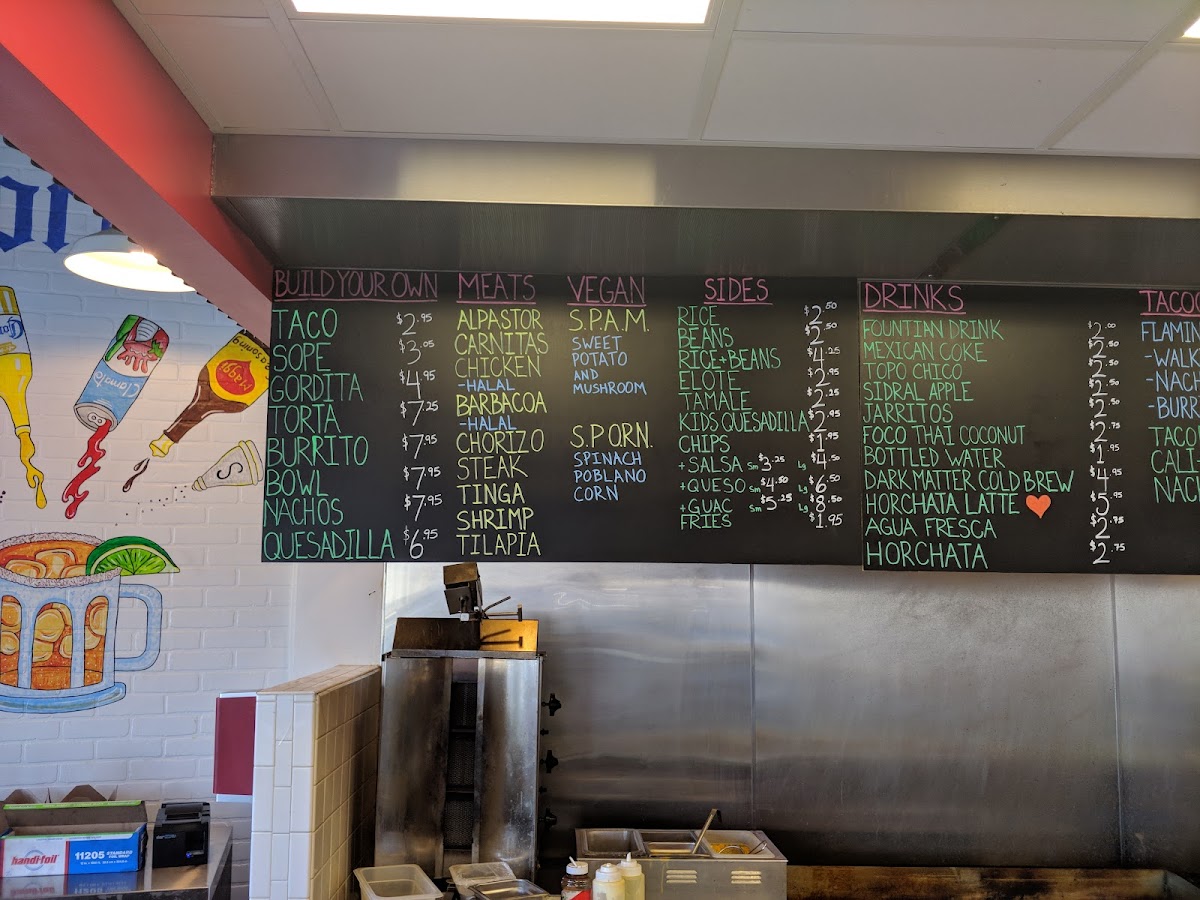 BUILD YOUR OWN
TACO $2.95
SOPE $3.05
GORDITA $4.95
TORTA $7.25
BURRITO $7.95
BOWL $7.95
NACHOS $7.95
QUESADILLA $6.95
MEATS
ALPASTOR
CARNITAS
CHICKEN
-HALAL
BARBACOA
-HALAL
CHORIZO
STEAK
TINGA
SHRIMP
TILAPIA
VEGAN
S.P.A.M.
SWEET
POTATO
AND
MUSHROOM
S.P.ORN.
SPINACH
POBLANO
CORN
SIDES
RICE $2.50
BEANS $2.50
RICE+BEANS $4.25
ELOTE $2.95
TAMALE $2.25
KIDS QUESADILLA $2.95
CHIPS $1.95
+SALSA Sm $3.25 Lg $4.50
+QUESO Sm $4.50 Lg $6.50
+GUAC Sm $5.25 Lg $8.50
FRIES $1.95
DRINKS
FOUNTIAN DRINK $2.00
MEXICAN COKE $2.50
TOPO CHICO $2.50
SIDRAL APPLE $2.50
JARRITOS $2.50
FOCO THAI COCONUT $2.75
BOTTLED WATER $1.95
DARK MATTER COLD BREW $4.95
HORCHATA LATTE $5.95
AGUA FRESCA $2.75
HORCHATA $2.75
TACO
FLAMIN
-WALK
-NACH
-BURR
TACO
CALI-
NACH
Clamato
Maggi
S
handi-foil
11205 STANDARD